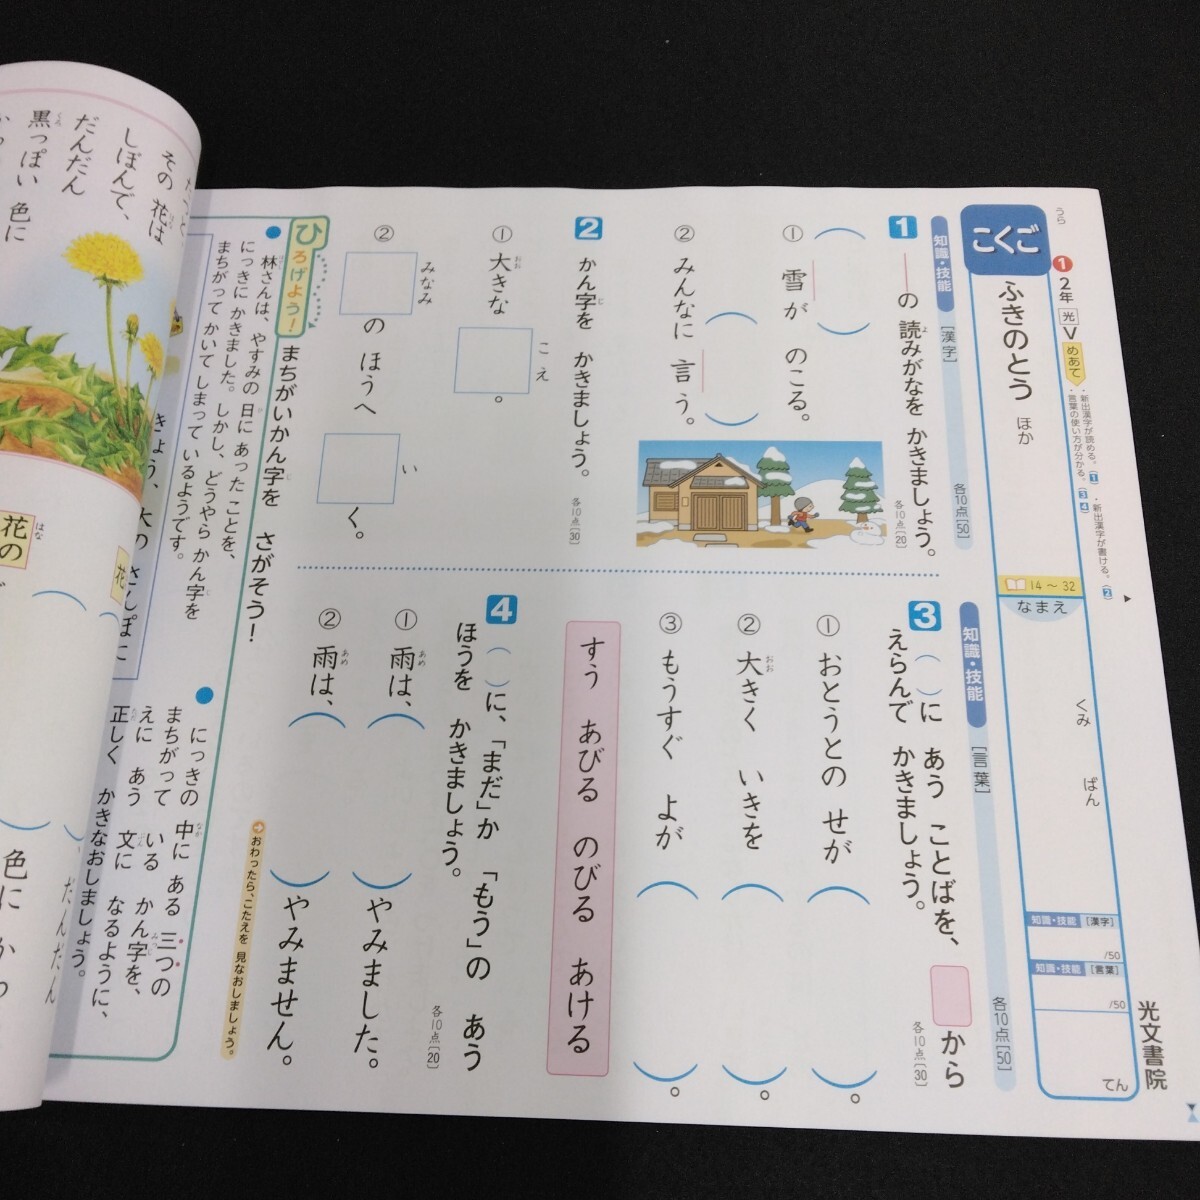 うら
こくご
① 2年 光 V めあて
・新出漢字が読める。(1) ・新出漢字が書ける。(2)
・言葉の使い方が分かる。(3 4)
ふきのとう ほか
14～32
なまえ
くみ ばん
知識・技能 [漢字]
/50
知識・技能 [言葉]
/50
てん
光文書院
知識・技能 [漢字] 各10点[50]
1 ―の 読みがなを かきましょう。 各10点[20]
① 雪が のこる。
② みんなに 言う。
2 かん字を かきましょう。 各10点[30]
① 大きな こえ 。
② みなみ の ほうへ い く。
知識・技能 [言葉] 各10点[50]
3 ( )に あう ことばを、 から
えらんで かきましょう。 各10点[30]
① おとうとの せが ( )。
② 大きく いきを ( )。
③ もうすぐ よが ( )。
すう あびる のびる あける
4 ( )に、「まだ」か 「もう」の あう
ほうを かきましょう。 各10点[20]
① 雨は、( )やみました。
② 雨は、( )やみません。
おわったら、こたえを 見なおしましょう。
ひろげよう! まちがいかん字を さがそう!
● 林さんは、やすみの 日に あった ことを、
にっきに かきました。しかし、どうやら かん字を
まちがって かいて しまって いるようです。
● にっきの 中に ある 三つの
まちがって いる かん字を、
えに あう 文に なるように、
正しく かきなおしましょう。
きょう、
その 花は
しぼんで、
だんだん
黒っぽい 色に
花の
花
色に かわ
だんだん